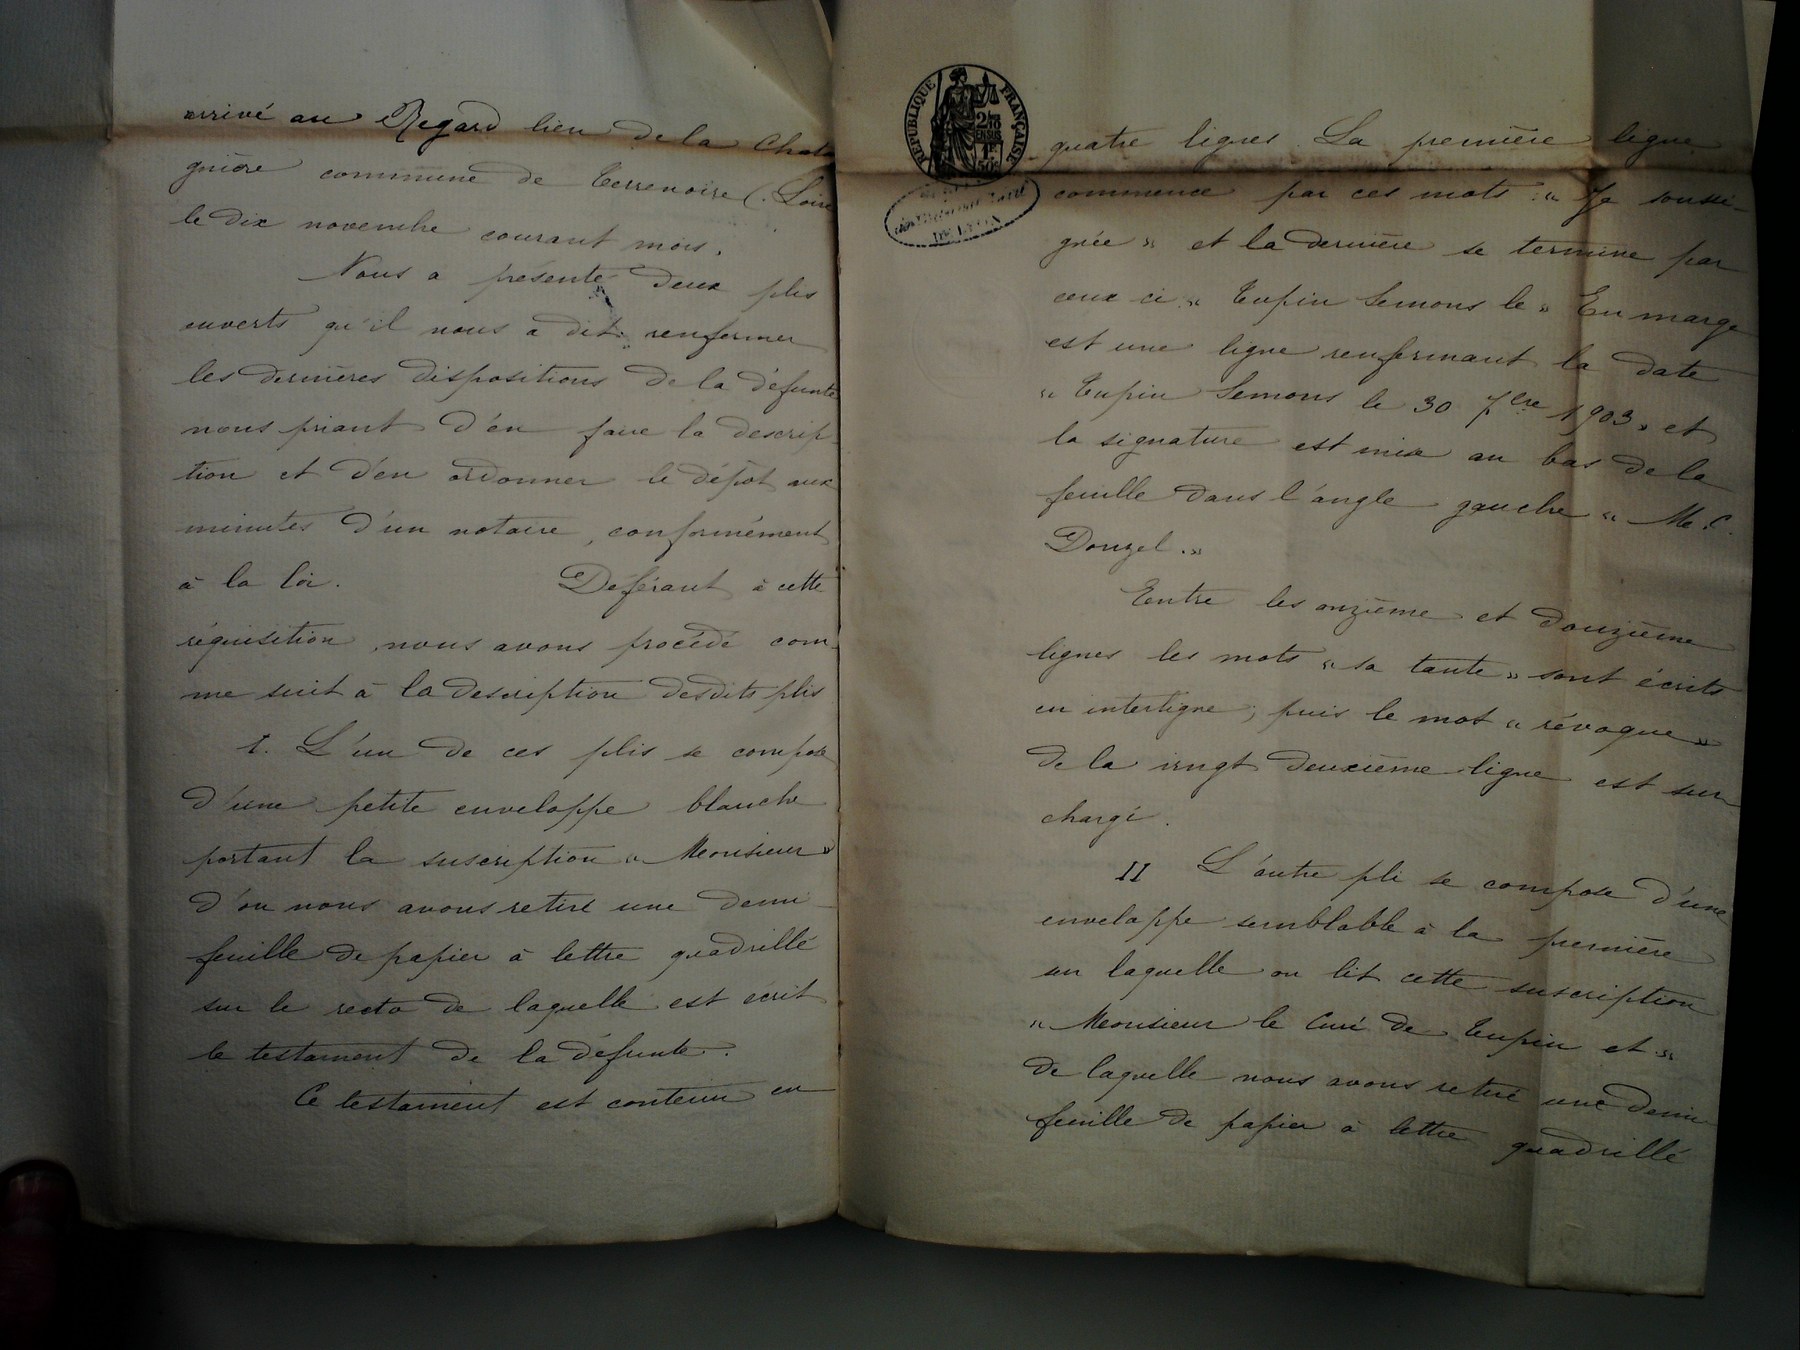 arrivé au Regard lieu de la Chatai
gnière commune de Terrenoire (Loire
le dix novembre courant mois.
Nous a présenté deux plis
ouverts qu'il nous a dit renfermer
les dernières dispositions de la défunte
nous priant d'en faire la descrip
tion et d'en ordonner le dépôt aux
minutes d'un notaire, conformément
à la loi. Déférant à cette
réquisition, nous avons procédé com
me suit à la description desdits plis
I. L'un de ces plis se compose
d'une petite enveloppe blanche
portant la suscription « Monsieur »
d'ou nous avons retiré une demi
feuille de papier à lettre quadrillé
sur le recto de laquelle est ecrit
le testament de la défunte.
Ce testament est contenu en
RÉPUBLIQUE FRANÇAISE
2/10
EN SUS
1F
50c
DE LYON
quatre lignes. La première ligne
commence par ces mots : « Je soussi-
gnée » et la dernière se termine par
ceux ci « Tupin Semons le » En marge
est une ligne renfermant la date
« Tupin Semons le 30 7bre 1903 » et
la signature est mise au bas de la
feuille dans l'angle gauche « M. C.
Douzel. »
Entre les onzième et douzième
lignes les mots « sa tante » sont écrits
en interligne ; puis le mot « révoque »
de la vingt deuxième ligne est sur
chargé.
II L'autre pli se compose d'une
enveloppe semblable à la première
sur laquelle on lit cette suscription
« Monsieur le Curé de Tupin et »
de laquelle nous avons retiré une demi
feuille de papier à lettre quadrillé